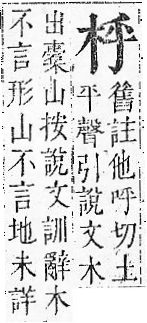 㭔
舊註他呼切土
平聲引說文木
出橐山按說文訓辭木
不言形山不言地未詳